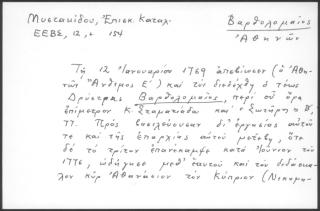 Μυστακίδου, Ἐπισκ. Καταλ.
ΕΕΒΣ, 12, 154
Βαρθολομαῖος
Ἀθηνῶν
Τῇ 12 Ἰανουαρίου 1789 ἀπεβίωσεν (ὁ Ἀθη-
νῶν Ἄνθιμος Ε΄) καὶ τὸν διεδέχθη ὁ τέως
Δρύστρας Βαρθολομαῖος, περὶ οὗ ὅρα
ἐπίμετρον Κ. Σταματιάδου καὶ
77. Πρὸς διʼ ἐργασίας αὐτοῦ
τε καὶ τῆς ἐπαρχίας αὐτοῦ μετέβη, ὅτε
δὲ τὸ τρίτον ἐπανέκαμψε κατὰ Ἰούνιον τοῦ
1776, ὡδήγησε μεθʼ ἑαυτοῦ καὶ τὸν διδάσκα-
λον κὺρ Ἀθανάσιον τὸν Κύπριον